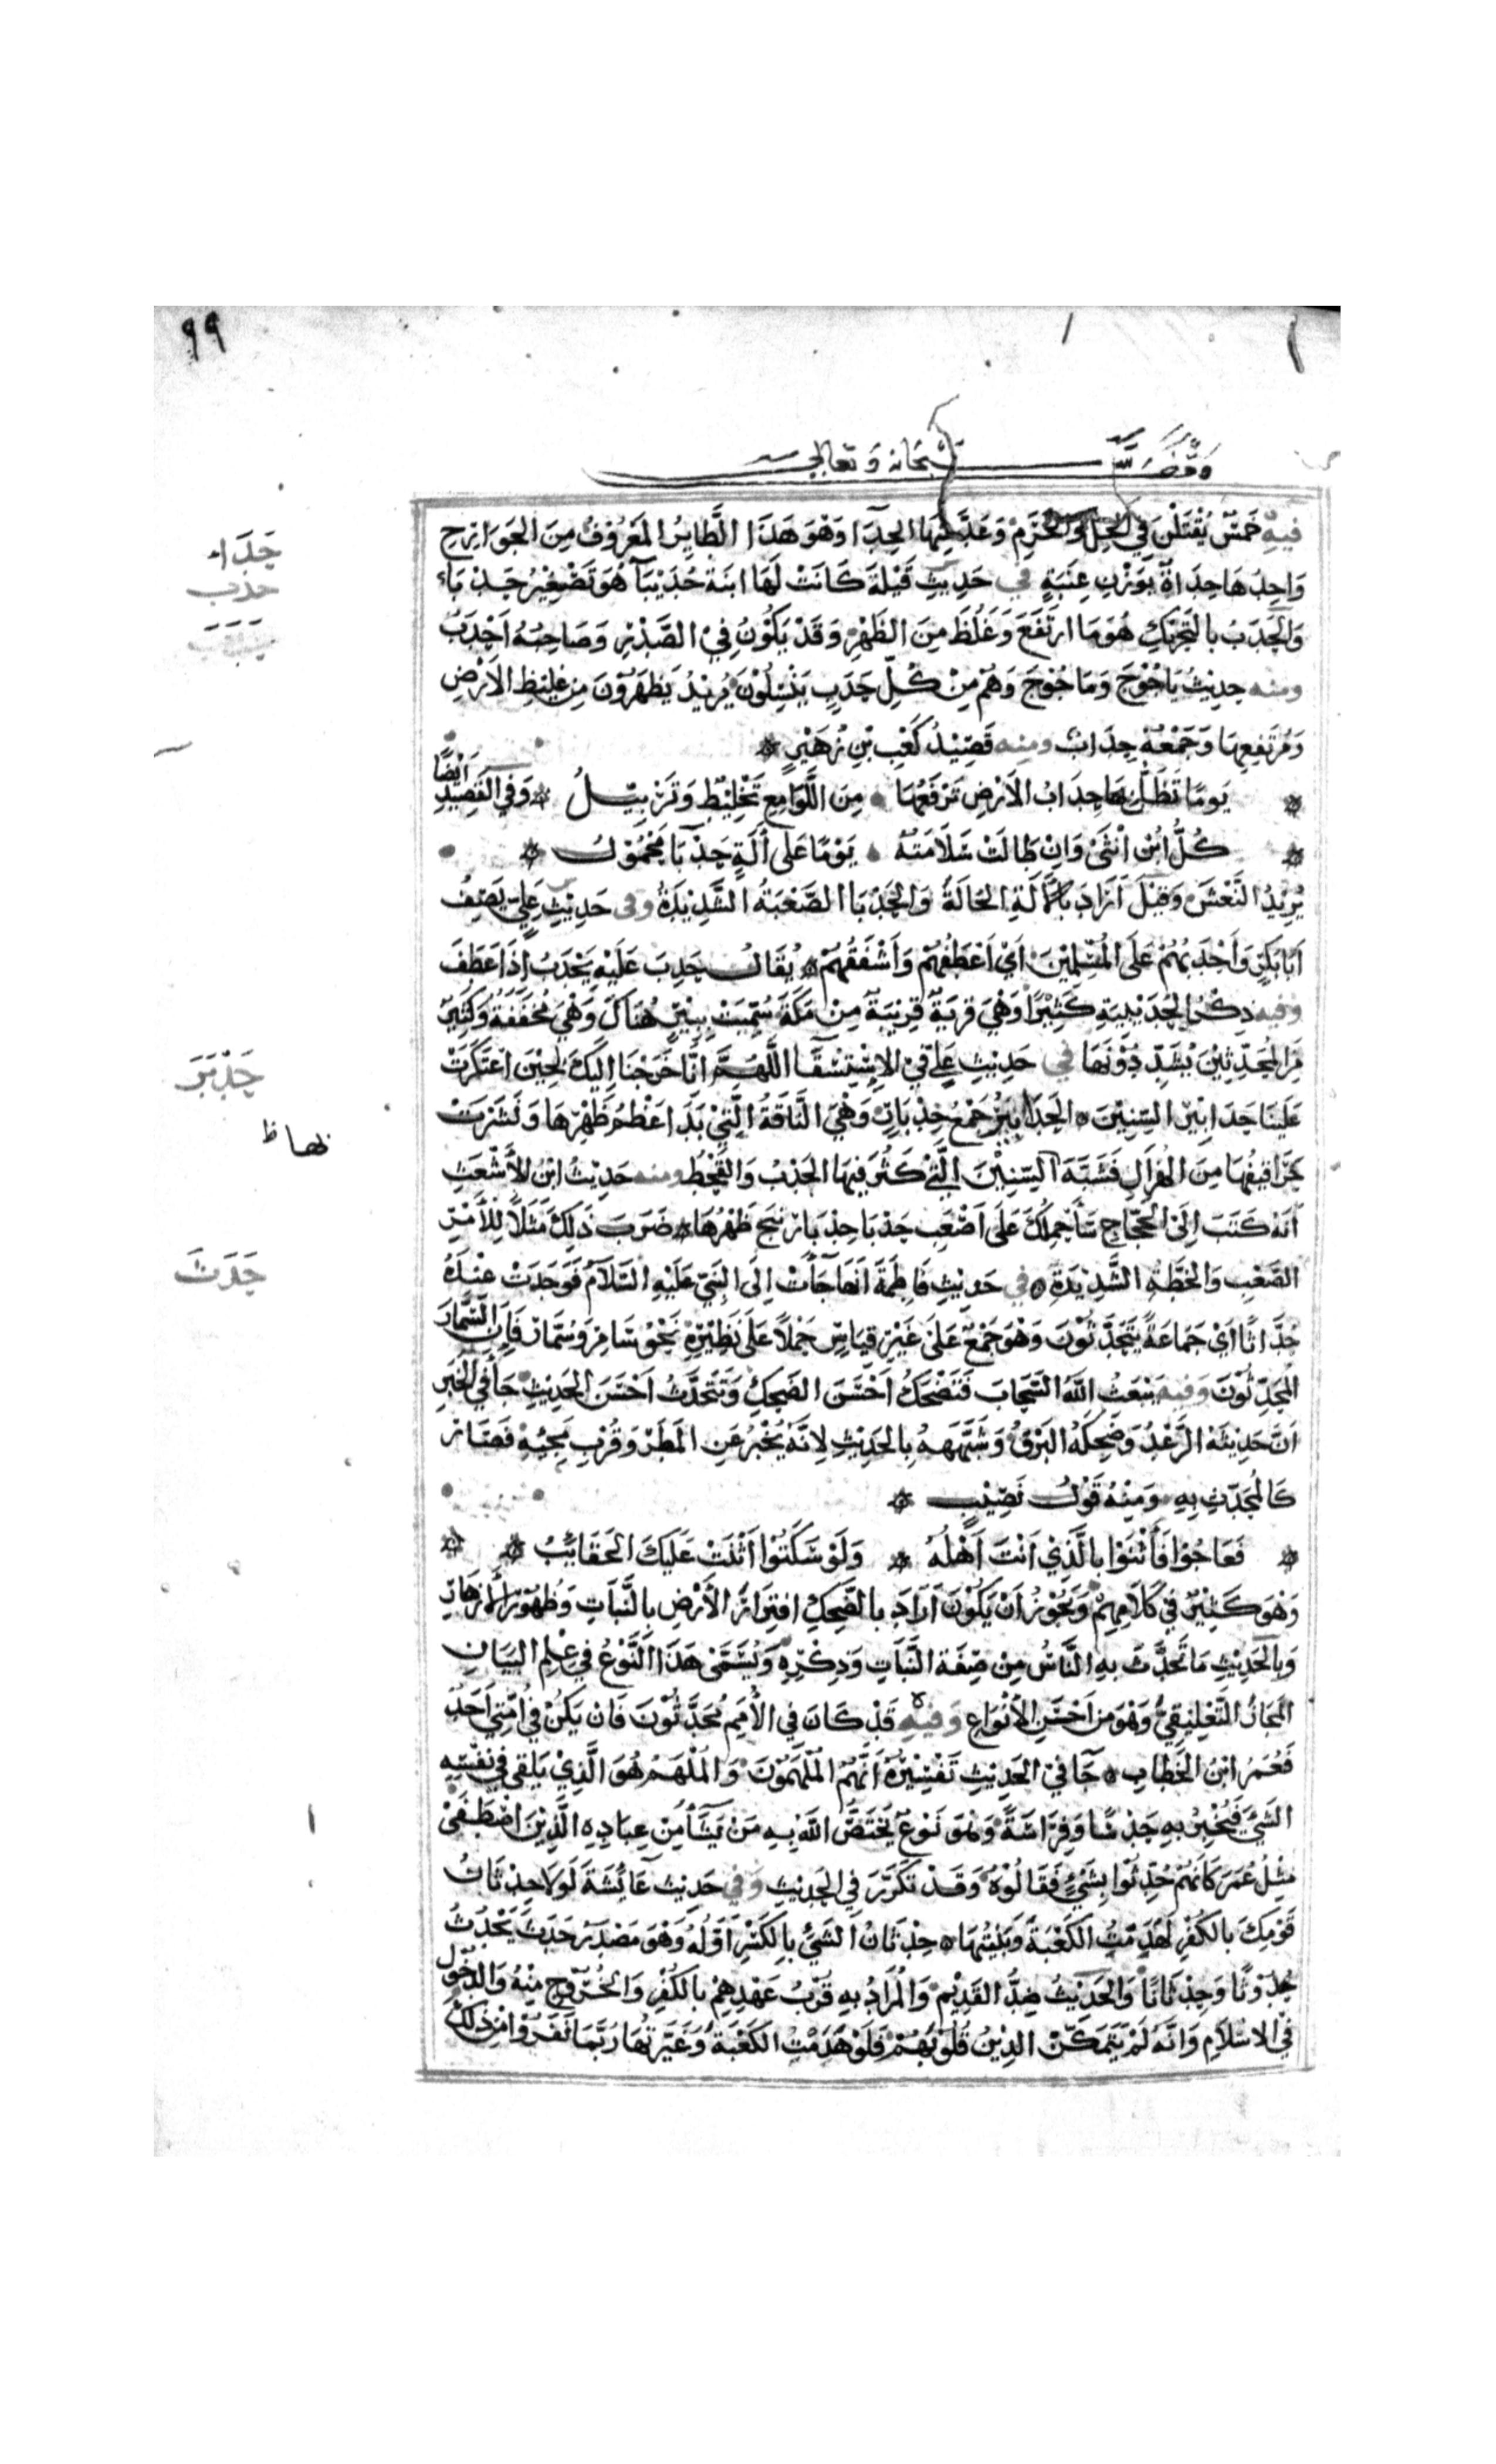 ٩٩
وقف لله سبحانه وتعالى
فيه خَمْسٌ يُقْتَلْنَ فِي الحِلِّ وَالحَرَمِ وَعَدَّ مِنْهَا الحِدَا وَهُوَ هَذَا الطَّايِرُ المَعْرُوفُ مِنَ الجَوَارِحِ
حَدَاء
وَاحِدُهَا حِدَاةٌ بِوَزْنِ عِنَبَةٍ في حَدِيثِ قَيْلَةَ كَانَتْ لَهَا ابنَةُ حُدَيْبَآ هُوَ تَصْغِيْرُ حَدْبَاء
حدب
وَالحَدَبُ بِالتَحْرِيْكِ هُوَ مَا ارتَفَعَ وَغَلُظَ مِنَ الظَهْرِ وَقَدْ يَكُوْنُ فِيْ الصَّدْرِ وَصَاحِبُهُ أَحْدَبُ
ومنه حدِيْثُ يَاجُوْجَ وَمَاجُوْجَ وَهُمْ مِنْ كُلِّ حَدَبٍ يَنْسِلُوْنَ يُرِيْدُ يَظْهَرُوْنَ مِن غَلِيْظِ الاَرْضِ
وَمُرْتَفِعِهَا وَجَمْعُهُ حِدَابٌ ومنه قَصِيْدُ كَعْبِ بْنِ زُهَيْرٍ
يَومًا تَظَلُّ بها حِدَابُ الاَرْضِ تَرْفَعُهَا مِنَ اللَّوَامِعِ تَخْلِيْطٌ وَتَزْيِيْلُ وَفِي القَصِيْدِ أَيْضًا
كُلُّ ابْنِ أُنْثَى وَاِنْ طَالَتْ سَلَامَتُهُ يَوْمًا عَلى آلَةٍ حَدْبَا مَحْمُوْلُ
يُرِيْدُ النَّعْشَ وَقِيْلَ اَرَادَ بِالآلَةِ الحَالَةَ وَالحَدْبَا الصَّعْبَةُ الشَّدِيْدَةُ وفى حَدِيْثِ عَلِيّ يَصِفُ
اَبَا بَكْرٍ وَأَحْدَبُهُمْ عَلَى المُسْلِمِيْنَ اَيْ اَعْطَفُهُمْ وَأَشْفَقُهُمْ يُقَالُ حَدِبَ عَلَيْهِ يَحْدَبُ اِذَا عَطَفَ
وفيه ذِكْرُ الحُدَيْبِيَةِ كَثِيْرًا وَهِيَ قَرْيَةٌ قَرِيْبَةٌ مِنْ مَكَّةَ سُمِّيَتْ بِبِئْرٍ هُنَاكَ وَهْيَ مُخَفَّفَةٌ وَكَثِيْرٌ
مِنَ المُحَدِّثِيْنَ يُشَدِّدُوْنَهَا في حَدِيْثِ عَلِيّ فيْ الاِسْتِسْقَا اللَّهُمَّ اِنَّا خَرَجْنَا اِلَيْكَ حِيْنَ اعتَكَرَتْ
حَدْبَرَ
عَلَيْنَا حَدَابِيْرُ السِنِيْنَ الحَدَابِيْرُ جَمْعُ حِدْبَارٍ وَهْيَ النَّاقَةُ الَّتِيْ بَدَا عَظْمُ ظَهْرِهَا وَنَشَزَتْ
حَرَاقِيْفُهَا مِنَ الهُزَالِ فَشَبَّهَ السِنِيْنَ الَّتِيْ كَثُرَ فِيْهَا الجَدْبُ وَالقَحْطُ ومنه حَدِيْثُ ابْنِ الاَشْعَثِ
بها ظ
اَنَهُ كَتَبَ اِلَى الحَجَّاجِ سَأَحْمِلُكَ عَلَى اَصْعَبِ حَدْبَا حِدْبَارٍ يَنْجُ ظَهْرُهَا ضَرَبَ ذَلِكَ مَثَلاً لِلأَمْرِ
حَدَثَ
الصَّعْبِ وَالخطَّةِ الشَّدِيْدَةِ في حَدِيْثِ فَاطِمَةَ اَنَهَا جَآءَتْ اِلَى النَبِيّ عَلَيْهِ السَّلَامُ فَوَجَدَتْ عِنْدَهُ
حُدَّاثًا اَيْ جَمَاعَةً يَتَحَدَّثُوْنَ وَهُوَ جَمْعٌ عَلَى غَيْرِ قِيَاسٍ حَمْلاً عَلَى نَظِيْرِهِ نَحْوُ سَامِرٍ وَسُمَّارٍ فَاِنَّ السُّمَّارَ
المُحَدِّثُوْنَ وَفيه يَبْعَثُ اللهُ السَّحَابَ فَتَضْحَكُ اَحْسَنَ الضَحِكِ وَتَتَحَدَّثُ اَحْسَنَ الحَدِيْثِ جَآ فِي الخَبَرِ
اَنَّ حَدِيْثَهُ الرَّعْدُ وَضَحِكَهُ البَرْقُ وَشَبَّهَهُ بِالحَدِيْثِ لِاَنَّهُ يُخْبِرُ عَنِ المَطَرِ وَقُرْبِ مَجِيْئِهِ فَصَارَ
كَالمُحَدِّثِ بِهِ وَمِنْهُ قَوْلُ نُصَيْبٍ
فَعَاجُوْا فَأَثْنَوْا بِالَّذِيْ اَنْتَ اَهْلُهُ وَلَوْ سَكَتُوْا اَثْنَتْ عَلَيْكَ الحَقَائِبُ
وَهُوَ كَثِيْرٌ فِي كَلَامِهِمْ وَيَجُوْزُ اَنْ يَكُوْنَ اَرَادَ بِالضَّحِكِ افتِرَارَ الاَرْضِ بِالنَّبَاتِ وَظُهُوْرَ الاَزهَارِ
وَبِالحَدِيْثِ مَا تَحَدَّثَ بِهِ النَّاسُ مِنْ صِفَةِ النَّبَاتِ وَذِكْرِهِ وَيُسَمَّى هَذَا النَّوْعُ فِي عِلْمِ البَيَانِ
المَجَازُ التَّعْلِيْقِيُّ وَهُوَ مِن اَحْسَنِ الأَنْوَاعِ وَفيه قَدْ كَانَ فِي الأُمَمِ مُحَدَّثُوْنَ فَاِنْ يَكُنْ فِي اُمَّتِي أَحَدٌ
فَعُمَرُ ابْنُ الخَطَّابِ جَآ فِيْ الحَدِيْثِ تَفْسِيْرُهُ اَنَّهُمُ المُلْهَمُوْنَ وَالمُلْهَمُ هُوَ الَّذِيْ يُلْقَى فِي نَفْسِهِ
الشَّيْ فَيُخْبِرُ بِهِ حَدْسًا وَفِرَاسَةً وَهُوَ نَوْعٌ يَخْتَصُّ اللهُ بِهِ مَنْ يَشَآ مِنْ عِبَادِهِ الَّذِيْنَ اصْطَفَى
مِثْلُ عُمَرَ كَأَنَّهُمْ حُدِّثُوا بِشَيْءٍ فَقَالُوْهُ وَقَدْ تَكَرَّرَ فِي الحَدِيْثِ وَفي حَدِيْثِ عَائِشَةَ لَوْلَا حِدْثَانُ
قَوْمِكَ بِالكُفْرِ لَهَدَمْتُ الكَعْبَةَ وَبَنَيْتُهَا حِدْثَانُ الشَيْ بِالكَسْرِ اَوَّلُهُ وَهْوَ مَصْدَرُ حَدَثَ يَحْدُثُ
حُدُوْثًا وَحِدْثَانًا وَالحَدِيْثُ ضِدُّ القَدِيْمِ وَالمُرَادُ بِهِ قُرْبُ عَهْدِهِمْ بِالكُفْرِ وَالخُرُوْجِ مِنْهُ وَالدُخُوْلِ
فِي الاسْلَامِ وَاَنَّهُ لَمْ يَتَمَكَّنِ الدِيْنُ قُلُوْبَهُمْ فَلَوْ هَدَمْتُ الكَعْبَةَ وَغَيَّرْتُهَا رُبَّمَا نَفَرُوْا مِن ذَلِكَ